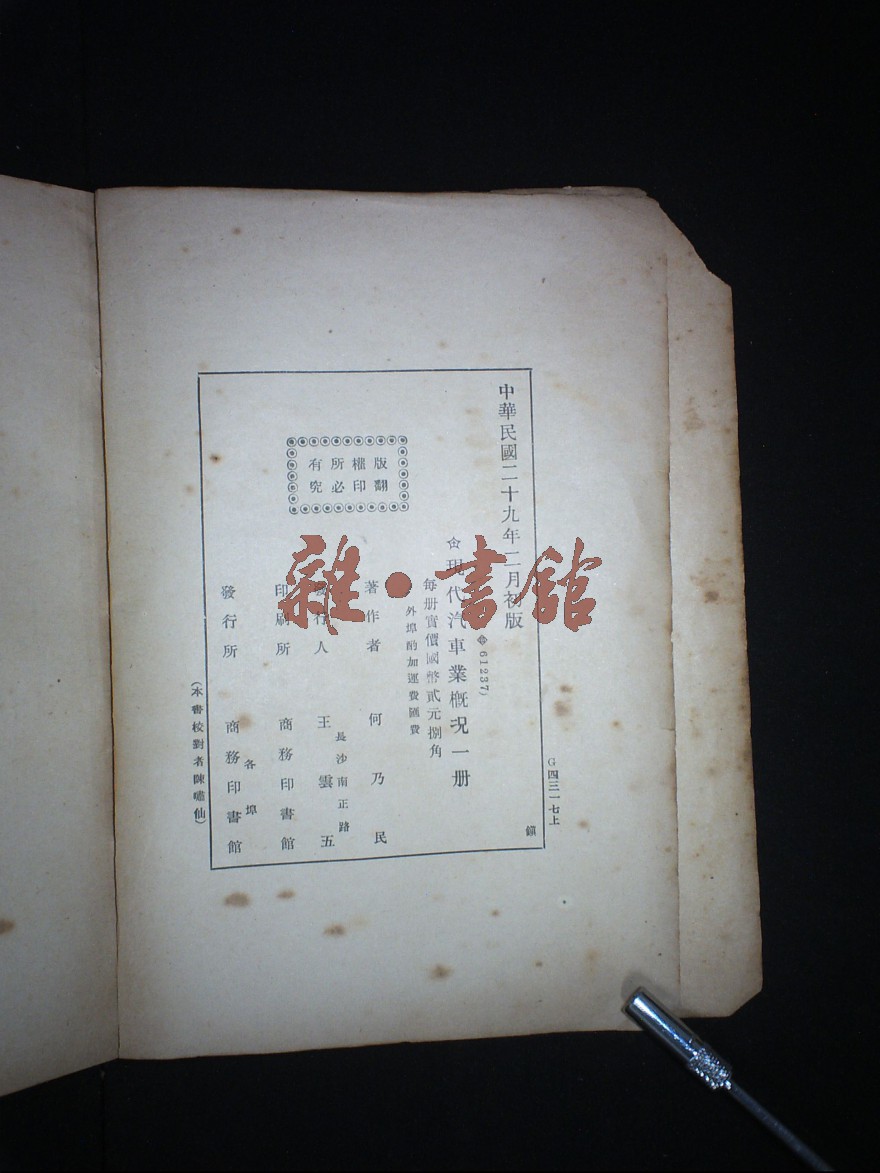 中華民國二十九年二月初版
(61237)
現代汽車業概況一册
每册實價國幣貳元捌角
外埠酌加運費匯費
著作者 何乃民
發行人 王雲五
長沙南正路
印刷所 商務印書館
發行所 商務印書館
各埠
(本書校對者陳嘯仙)
版權所有
翻印必究
G四三一七上
鎮
雜·書館